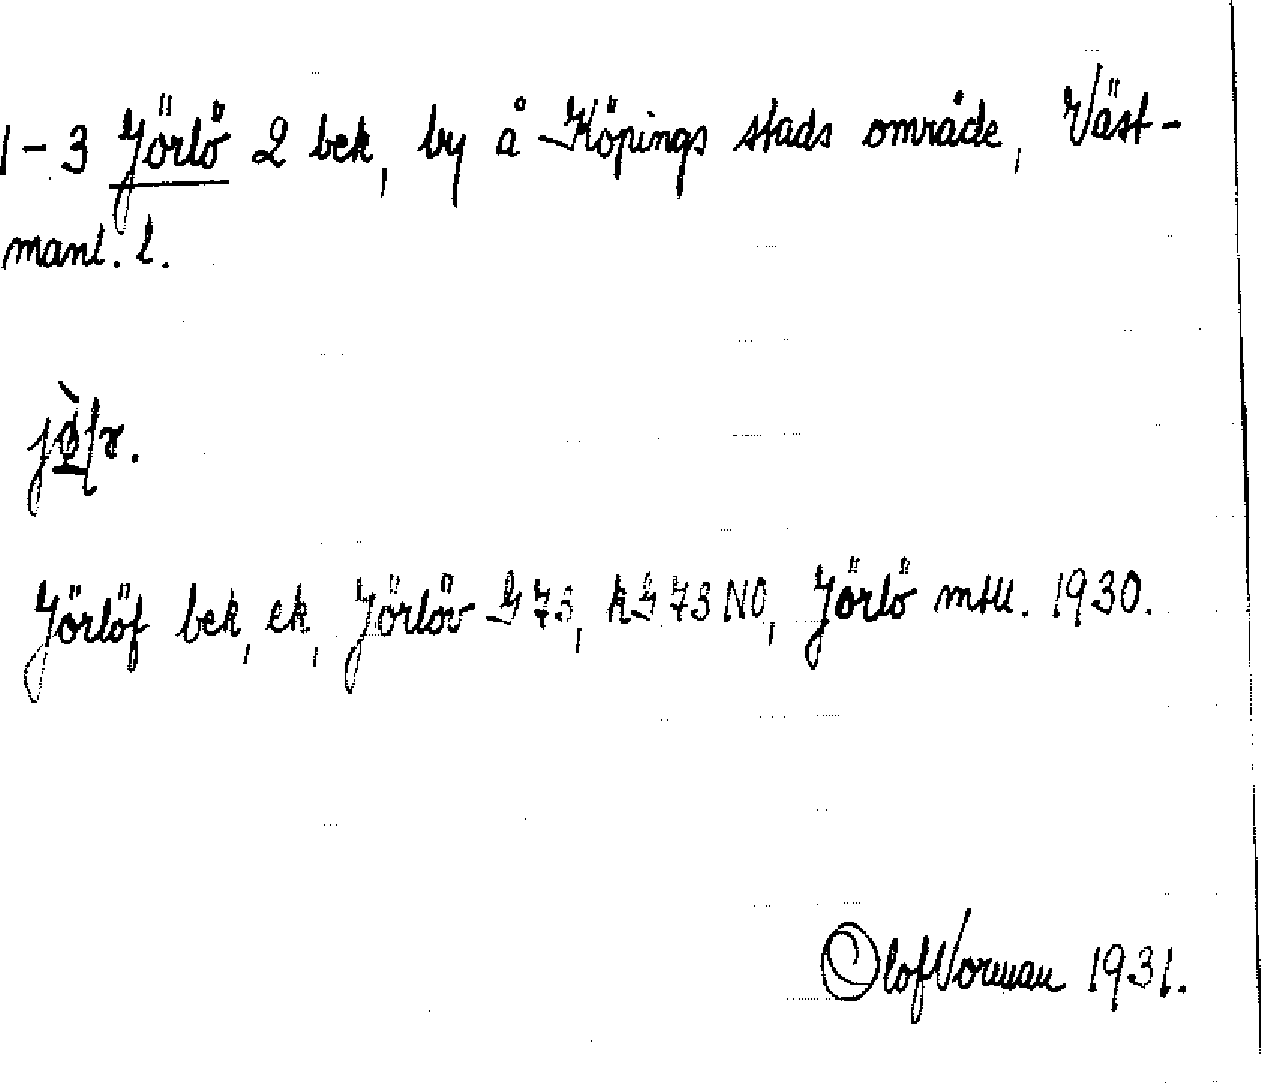 1-3 Jörlö 2 bek, by å Köpings stads område, Väst-
manl. l.
Jörlöf bek, ek, Jörlöv G 73, kG 73 NO, Jörlö mtll. 1930.
Olof Norman 1931.